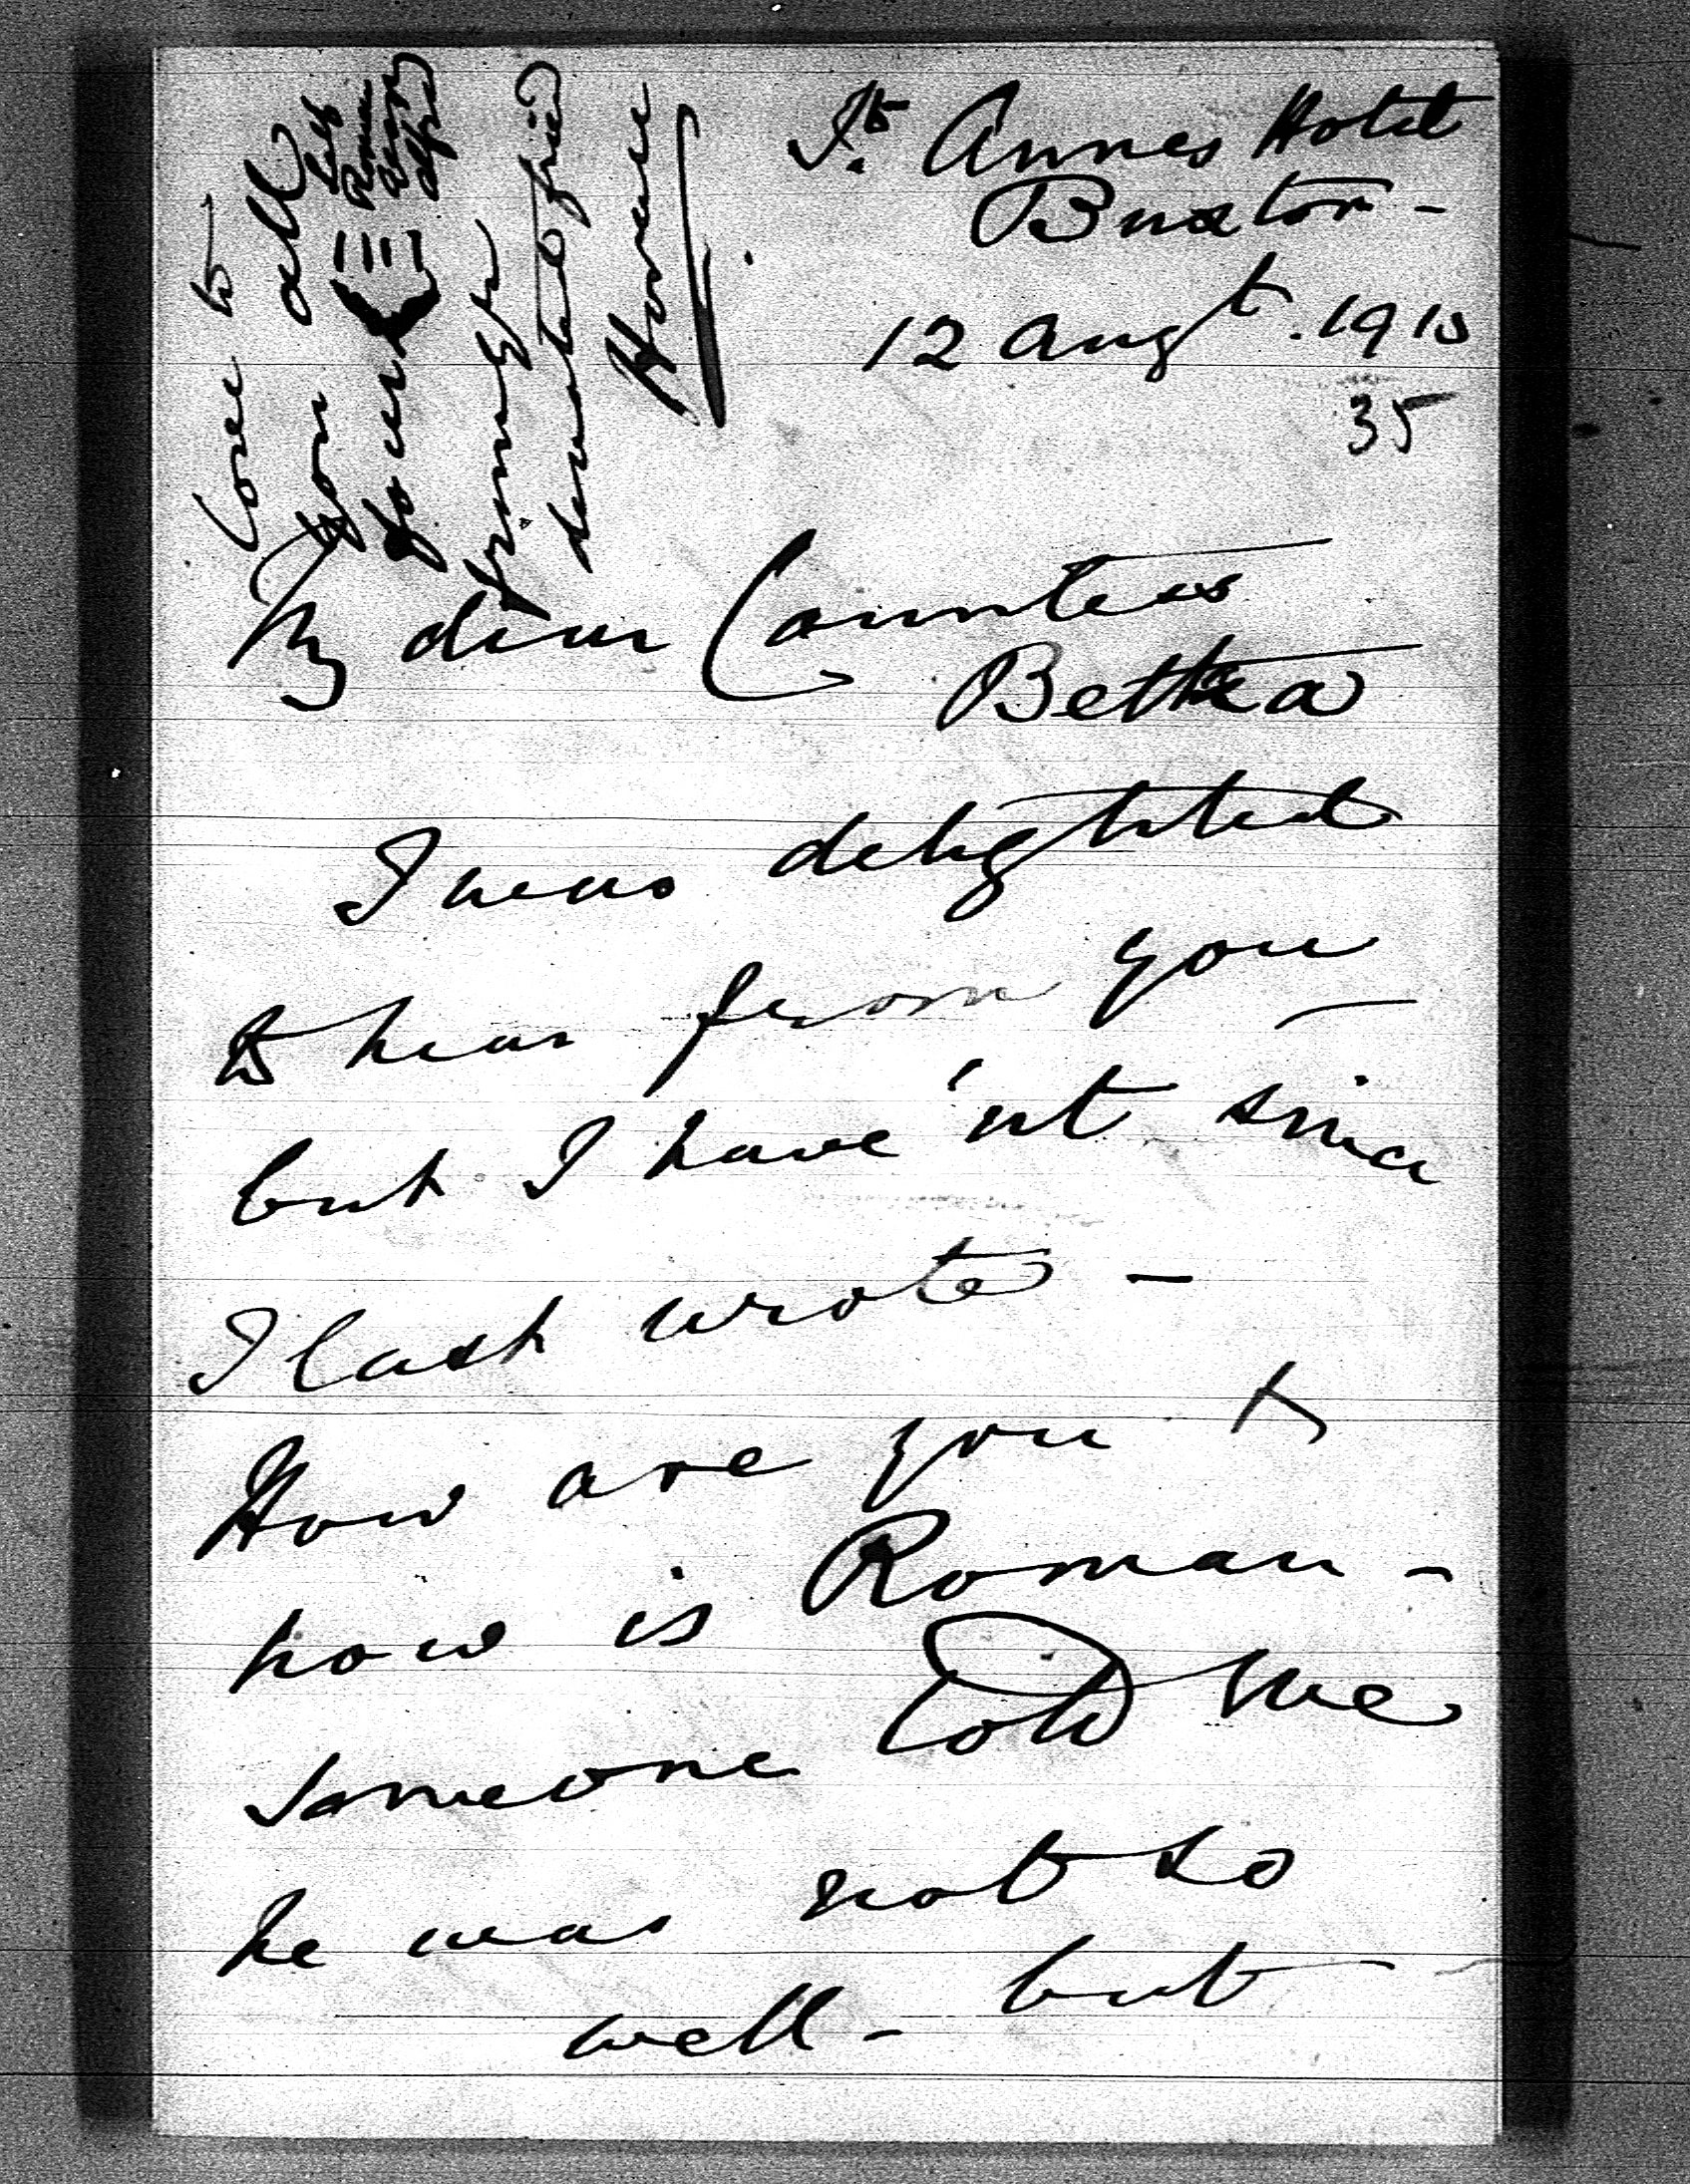 St. Annes Hotel
Buxton -
12 Augt. 1910
35
Love to
you all
your
devoted friend
Horace
My dear Countess
Betka
I was delighted
to hear from you
but I have'nt since
I last wrote -
How are you &
how is Roman -
someone told me
he was not so
well - but